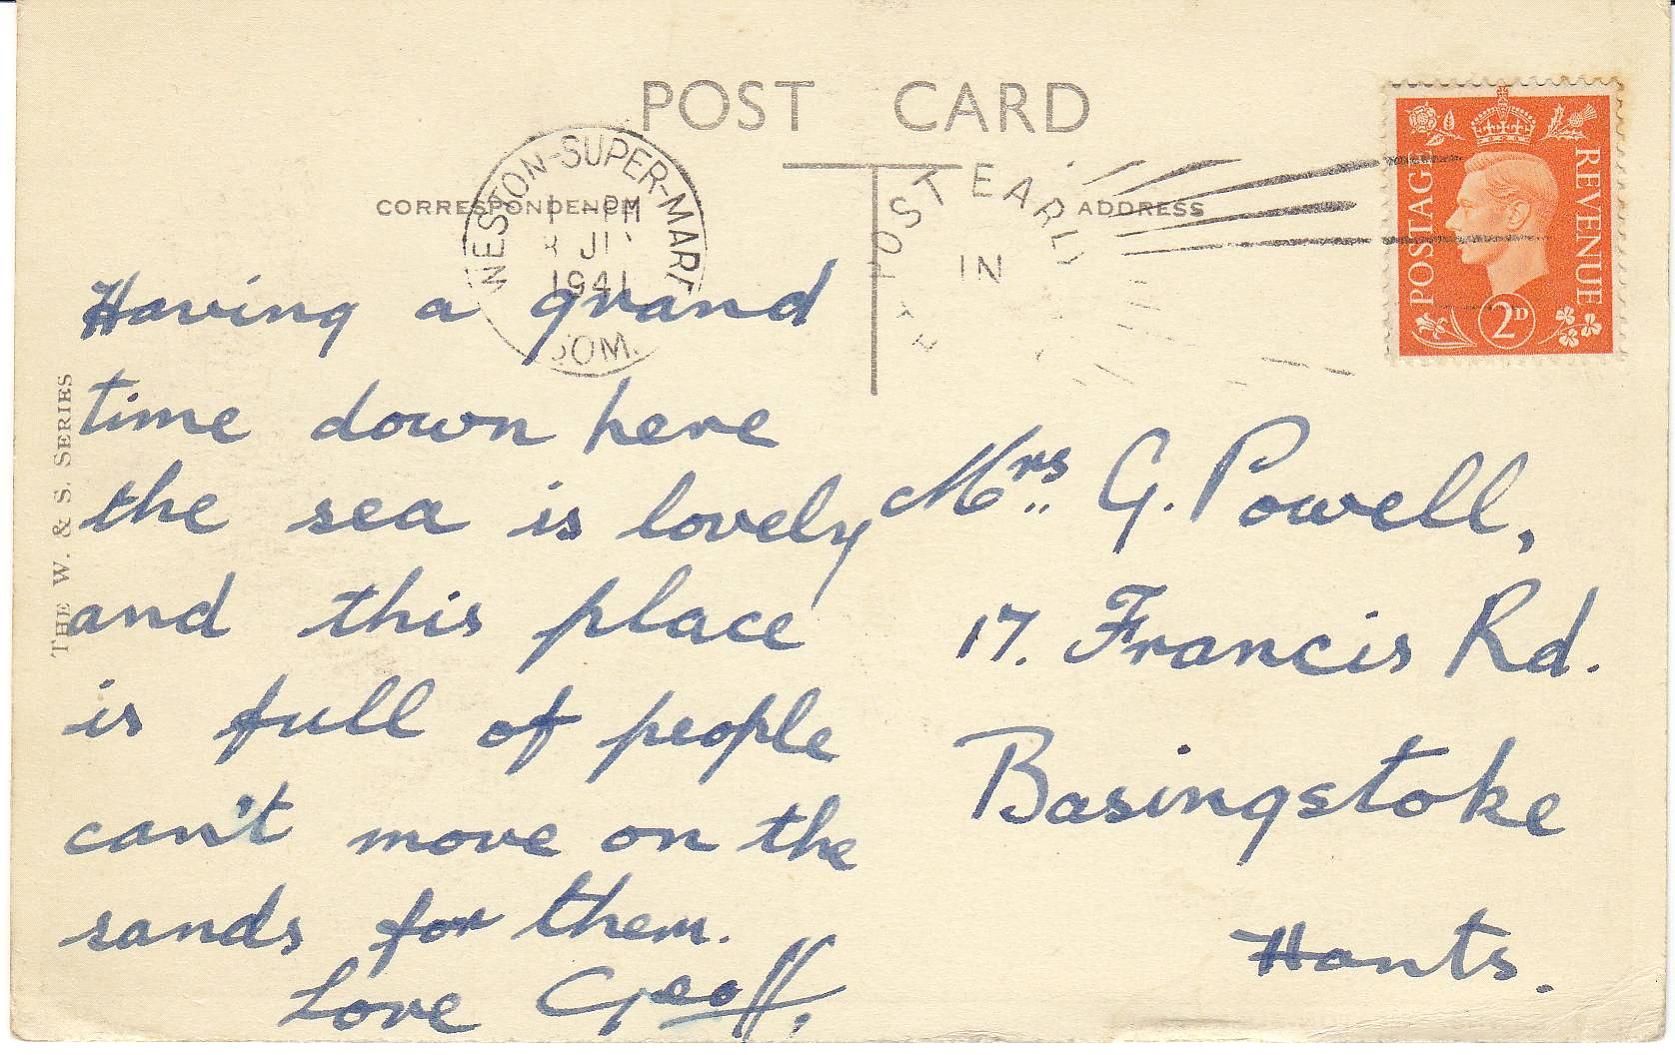 POST CARD
CORRESPONDENCE
ADDRESS
WESTON-SUPER-MARE
1 - PM
1941
SOM.
POST EARLY
IN
THE
POSTAGE
REVENUE
2D
THE W. & S. SERIES
Having a grand
time down here
the sea is lovely
and this place
is full of people
can't move on the
sands for them.
Love Geoff,
Mrs. G. Powell,
17. Francis Rd.
Basingstoke
Hants.